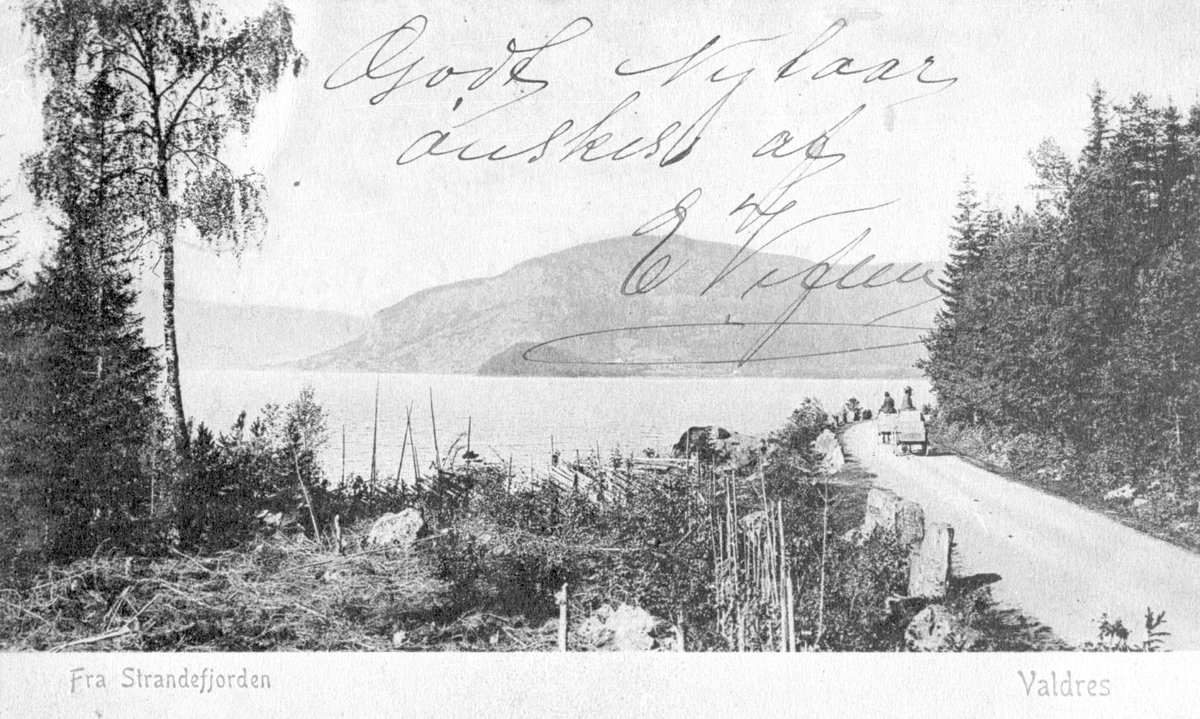 Godt Nytaar
ønskes af
E
Fra Strandefjorden
Valdres